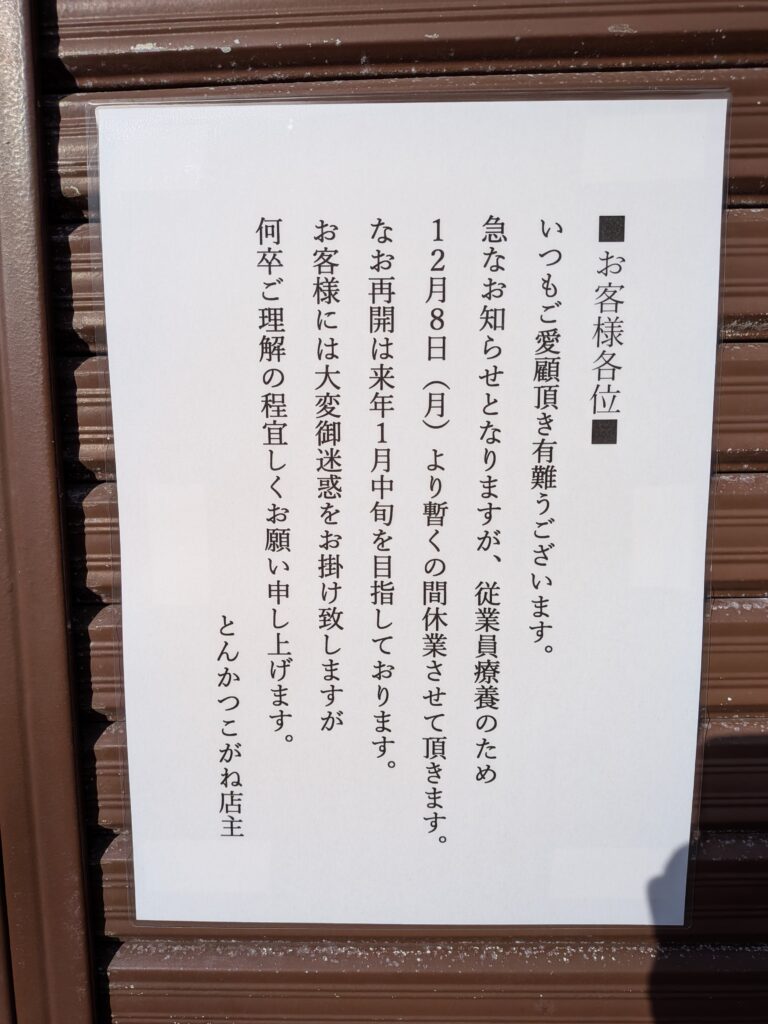 ■お客様各位■
いつもご愛顧頂き有難うございます。
急なお知らせとなりますが、従業員療養のため
12月8日（月）より暫くの間休業させて頂きます。
なお再開は来年1月中旬を目指しております。
お客様には大変御迷惑をお掛け致しますが
何卒ご理解の程宜しくお願い申し上げます。
とんかつこがね店主